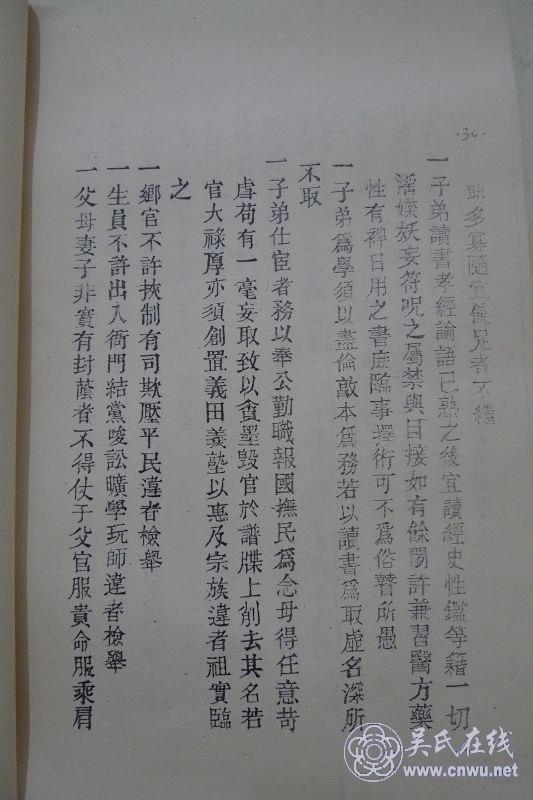 36.
助多寡隨宜
者不
一子弟讀書孝經論語已熟之後宜讀經史性鑑等籍一切
淫媟妖妄符呪之屬禁與目接如有餘閒許兼習醫方藥
性有裨日用之書庶臨事擇術可不爲俗瞽所愚
一子弟爲學須以盡倫敦本爲務若以讀書爲取虛名深所
不取
一子弟仕宦者務以奉公勤職報國撫民爲念毋得任意苛
虐苟有一毫妄取致以貪墨毀官於譜牒上削去其名若
官大祿厚亦須創置義田義塾以惠及宗族違者祖實臨
之
一鄉官不許挾制有司欺壓平民違者檢舉
一生員不許出入衙門結黨唆訟曠學玩師違者檢舉
一父母妻子非實有封蔭者不得仗子父官服貴命服乘肩
吴氏在线
www.cnwu.net